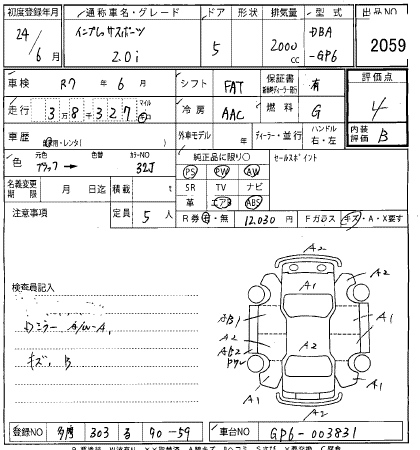 初度登録年月 通称車名・グレード ドア 形状 排気量 型式 出品NO
24/6月 インプレッサスポーツ 2.0i 5 2000cc DBA-GP6 2059
車検 R7年6月 シフト FAT 保証書 有 評価点
走行 38327 マイル 冷房 AAC 燃料 G 4
車歴 自家用・レンタ( ) 外車モデル 年 ディーラー・並行 ハンドル 右・左 内装評価 B
色 元色 ブラック 色替 カラーNO 32J 純正品に限り○ セールスポイント
PS PW AW
名義変更期限 月 日迄 積載 t SR TV ナビ
革 エアB ABS
注意事項 定員 5人 R券 有・無 12,030円 Fガラス キズ・A・X要す
A2
A1
A2
A2
検査員記入
AB1
A1
A1
A2
A2
A2
Dミラー A/W-A,
AB2
キズ、B
A1
A1
A2
登録NO 多摩 303 る 40-59 車台NO GP6-003831